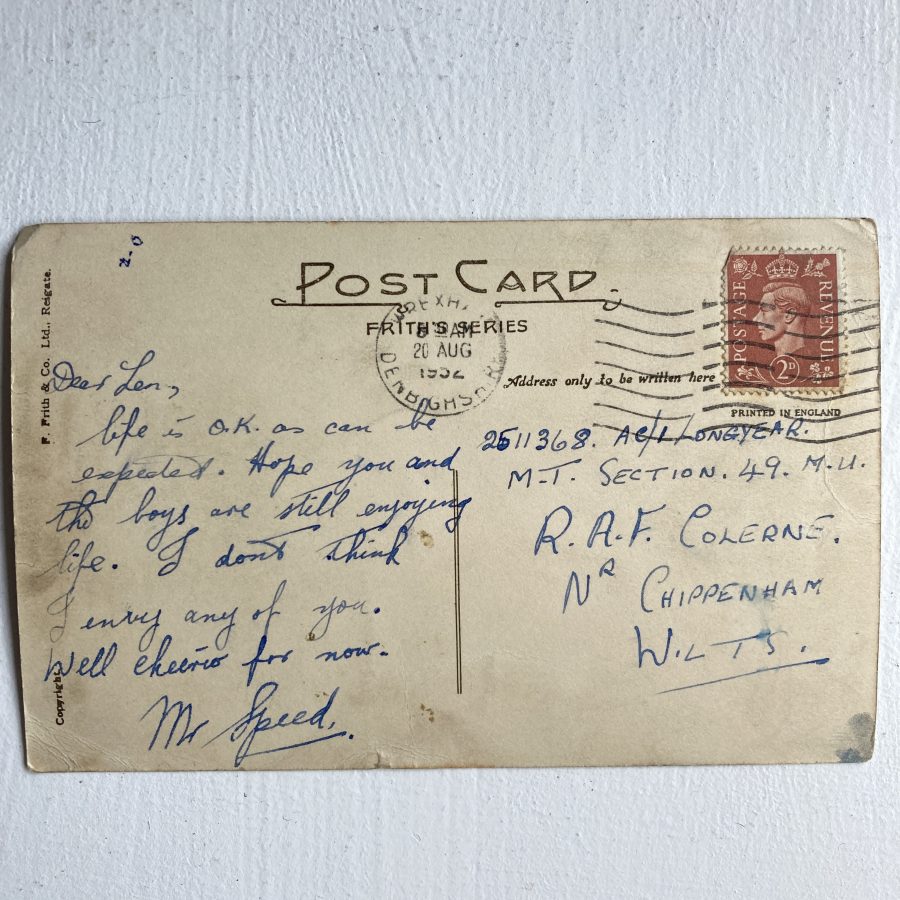 POST CARD
FRITH'S SERIES
WREXHA
AM
20 AUG
1952
DENBIGHSHIRE
POSTAGE
REVENUE
2D
Address only to be written here
PRINTED IN ENGLAND
F. Frith & Co. Ltd., Reigate.
Copyright.
Dear Len,
life is O.K. as can be
expected. Hope you and
the boys are still enjoying
life. I don't think
I envy any of you.
Well cheerio for now.
Mr Speed.
2511368. AC/1 LONGYEAR.
M.T. SECTION. 49. M.U.
R.A.F. COLERNE.
NR CHIPPENHAM
WILTS.